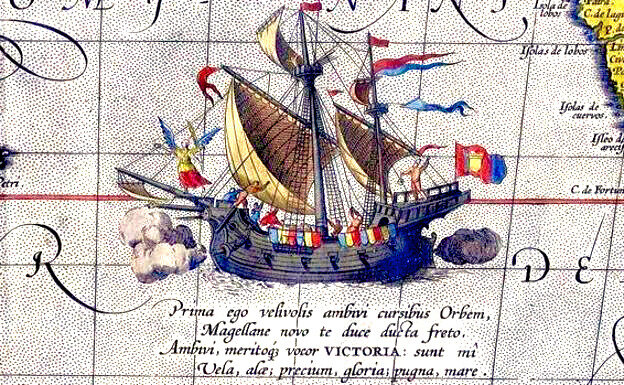 Isola de
lobos
C. de lagu
Isolas de lobos
Isolas de
cuervos
Isleo de
C. de Fortun
R DE
Prima ego velivolis ambivi cursibus Orbem,
Magellane novo te duce ducta freto.
Ambivi, meritoq; vocor VICTORIA: sunt mî
Vela, alæ; precium, gloria; pugna, mare.